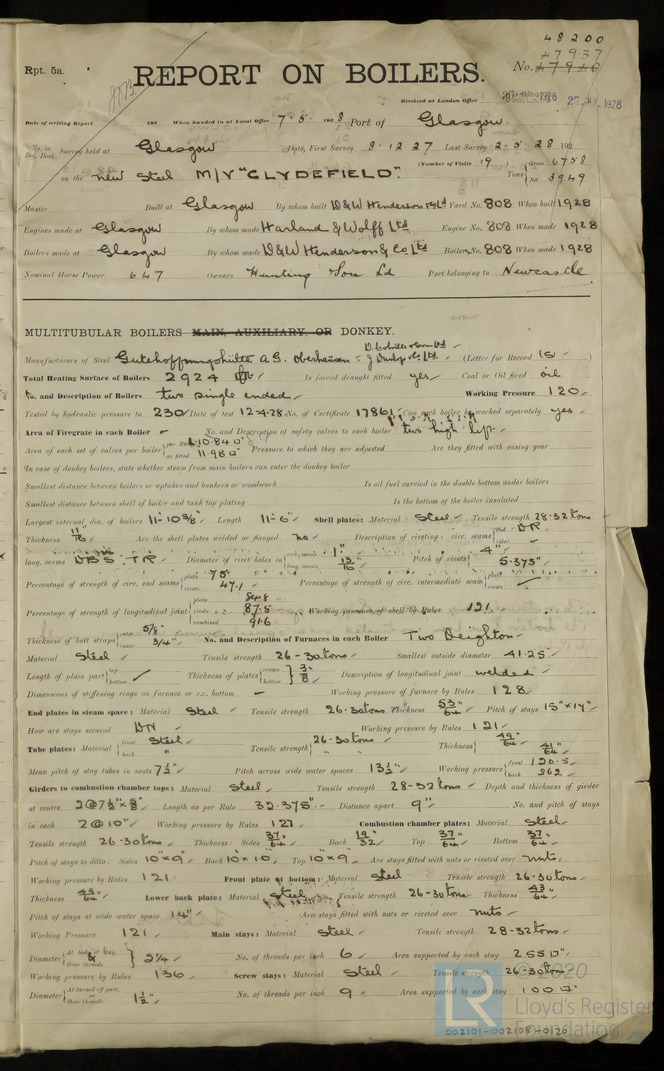 48200
47937
Rpt. 5a.
REPORT ON BOILERS.
No. 47940
Received at London Office
1928
25 1928
Date of writing Report 192 When handed in at Local Office 7.5.1928 Port of Glasgow.
No. in Reg. Book. Survey held at Glasgow Date, First Survey 8.12.27 Last Survey 2-5-28 192
(Number of Visits 19) Gross 6758
on the New Steel M/V "CLYDEFIELD". Tons Net 3949
Master Built at Glasgow By whom built D&W Henderson & Co Ld Yard No. 808 When built 1928
Engines made at Glasgow By whom made Harland & Wolff Ltd Engine No. 808 When made 1928
Boilers made at Glasgow By whom made D&W Henderson & Co Ltd Boiler No. 808 When made 1928
Nominal Horse Power 647 Owners Hunting & Son Ld Port belonging to Newcastle
MULTITUBULAR BOILERS MAIN, AUXILIARY, OR DONKEY.
D. Colville & Sons Ltd
Manufacturers of Steel Gutehoffnungshütte A.G. Oberhausen J Dunlop & Co Ltd. (Letter for Record (S) )
Total Heating Surface of Boilers 2924 Is forced draught fitted yes Coal or Oil fired oil
No. and Description of Boilers two single ended Working Pressure 120
Tested by hydraulic pressure to 230 Date of test 12-4-28 No. of Certificate 17861 Can each boiler be worked separately yes
Area of Firegrate in each Boiler No. and Description of safety valves to each boiler two high lift
Area of each set of valves per boiler per Rule 10.84 □" as fitted 11.98 □" Pressure to which they are adjusted Are they fitted with easing gear
In case of donkey boilers, state whether steam from main boilers can enter the donkey boiler
Smallest distance between boilers or uptakes and bunkers or woodwork Is oil fuel carried in the double bottom under boilers
Smallest distance between shell of boiler and tank top plating Is the bottom of the boiler insulated
Largest internal dia. of boilers 11'-10 5/8" Length 11'-6" Shell plates: Material Steel Tensile strength 28-32 tons
Thickness 11/16 Are the shell plates welded or flanged no Description of riveting: circ. seams end DR inter.
long. seams DBS TR Diameter of rivet holes in circ. seams 1" long. seams 13/16 Pitch of rivets 4" 5.375"
Percentage of strength of circ. end seams plate 75 rivets 47.1 Percentage of strength of circ. intermediate seam plate rivets
Percentage of strength of longitudinal joint plate 84.8 rivets 87.5 combined 91.6 Working pressure of shell by Rules 121
Thickness of butt straps outer 5/8" inner 3/4" No. and Description of Furnaces in each Boiler Two Deighton
Material Steel Tensile strength 26-30 tons Smallest outside diameter 41.25
Length of plain part top bottom Thickness of plates crown bottom 3/8 Description of longitudinal joint welded
Dimensions of stiffening rings on furnace or c.c. bottom Working pressure of furnace by Rules 128
End plates in steam space: Material Steel Tensile strength 26-30 tons Thickness 53/64 Pitch of stays 15" x 17"
How are stays secured DN Working pressure by Rules 121
Tube plates: Material front Steel back " Tensile strength 26-30 tons " Thickness 49/64 41/64
Mean pitch of stay tubes in nests 7 1/2" Pitch across wide water spaces 13 1/2" Working pressure front 120.5 back 262
Girders to combustion chamber tops: Material Steel Tensile strength 28-32 tons Depth and thickness of girder
at centre 2 @ 7 1/2" x 5/8" Length as per Rule 32.375" Distance apart 9" No. and pitch of stays
in each 2 @ 10" Working pressure by Rules 121 Combustion chamber plates: Material Steel
Tensile strength 26-30 tons Thickness: Sides 37/64 Back 19/32 Top 37/64 Bottom 37/64
Pitch of stays to ditto: Sides 10" x 9" Back 10" x 10" Top 10" x 9" Are stays fitted with nuts or riveted over nuts
Working pressure by Rules 121 Front plate at bottom: Material Steel Tensile strength 26-30 tons
Thickness 49/64" Lower back plate: Material Steel Tensile strength 26-30 tons Thickness 43/64"
Pitch of stays at wide water space 14" Are stays fitted with nuts or riveted over nuts
Working Pressure 121 Main stays: Material Steel Tensile strength 28-32 tons
Diameter At body of stay, or Over threads 2 1/4 No. of threads per inch 6 Area supported by each stay 255 □"
Working pressure by Rules 136 Screw stays: Material Steel Tensile strength 26-30 tons
Diameter At turned off part, or Over threads 1 1/2" No. of threads per inch 9 Area supported by each stay 100 □"
© 2020
LR
Lloyd's Register
Foundation
002101-002108-0120